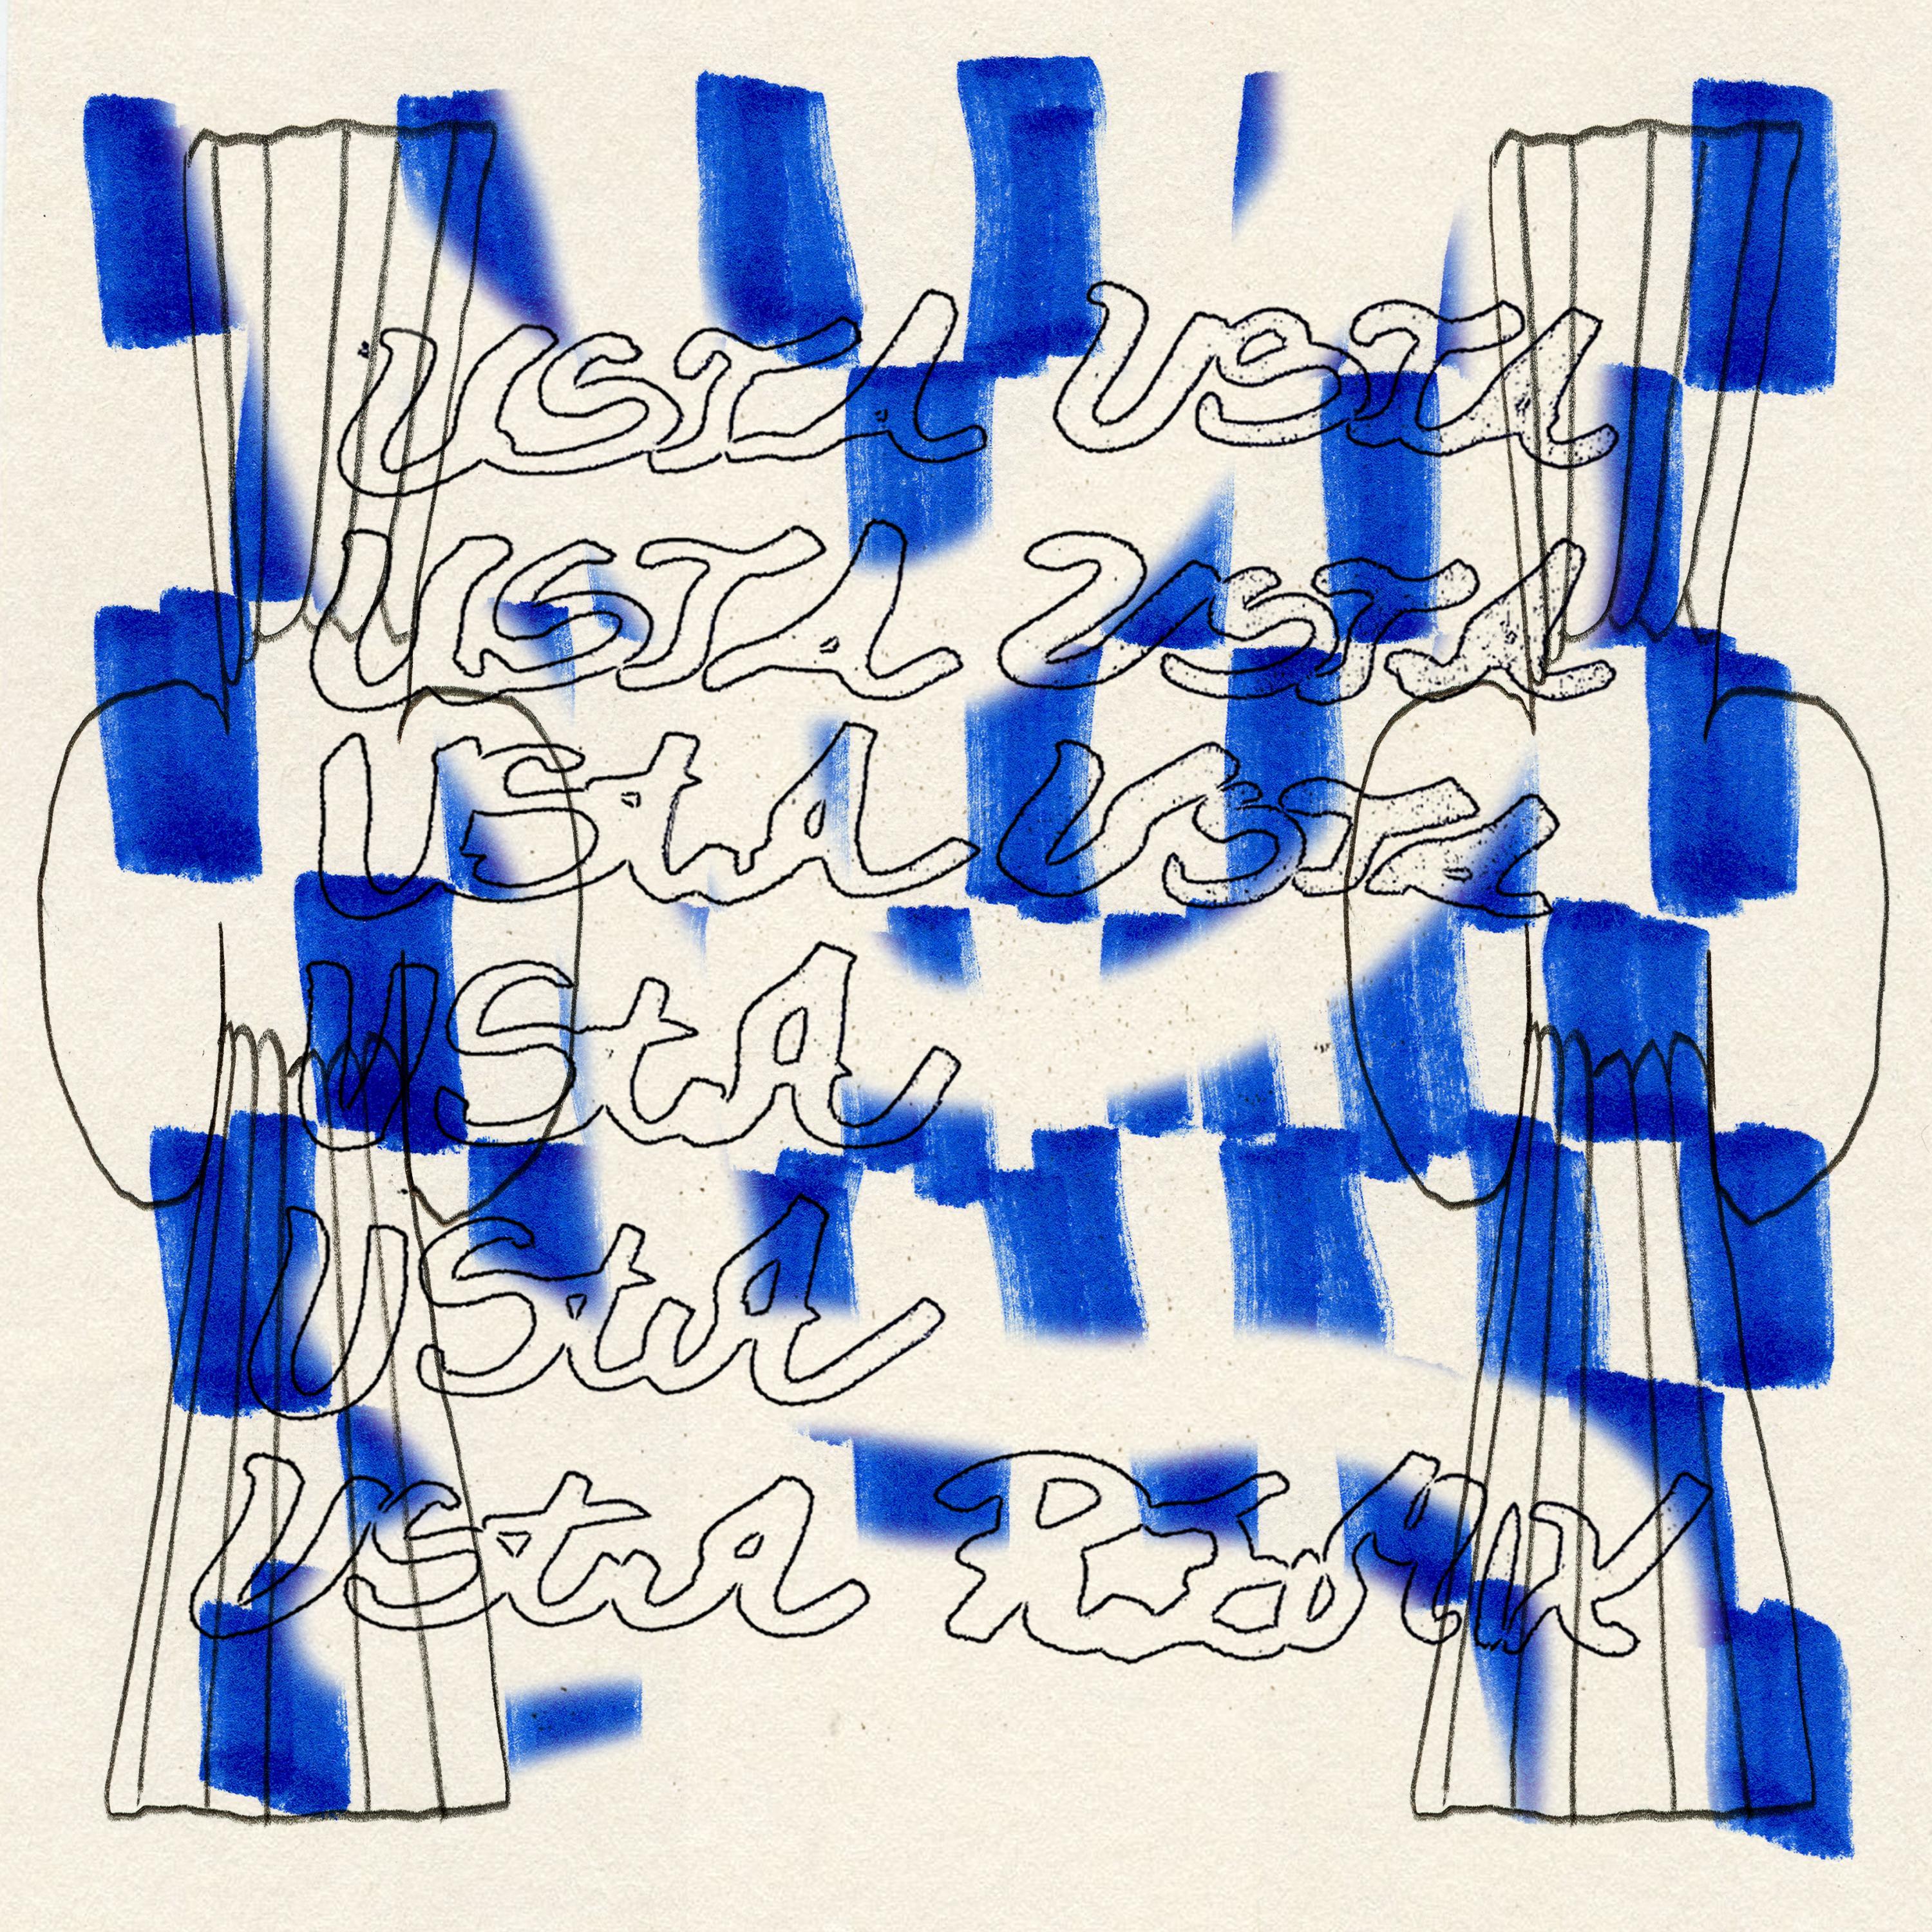 USTA USTA
USTA USTA
UStA USTA
UStA
UStA
UStA REMIX